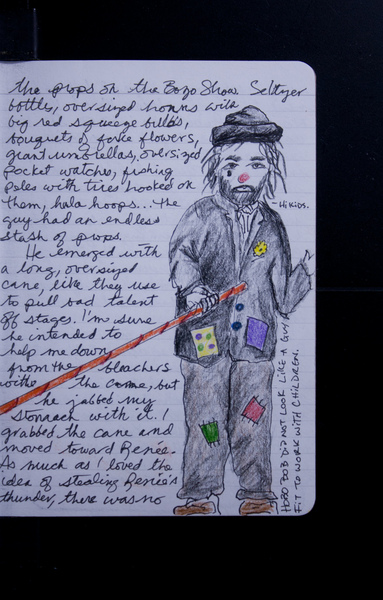 the props on the Bozo Show. Seltzer
bottles, oversized horns with
big red squeeze bulbs,
bouquets of fake flowers,
giant umbrellas, oversized
pocket watches, fishing
poles with tires hooked on
them, hula hoops... the
guy had an endless
stash of props.
He emerged with
a long, oversized
cane, like they use
to pull bad talent
off stages. I'm sure
he intended to
help me down
from the bleachers
with the cane, but
he jabbed my
stomach with it. I
grabbed the cane and
moved toward Renée.
As much as I loved the
idea of stealing Renée's
thunder, there was no
- Hi Kids.
HOBO BOB DID NOT LOOK LIKE A GUY
FIT TO WORK WITH CHILDREN.